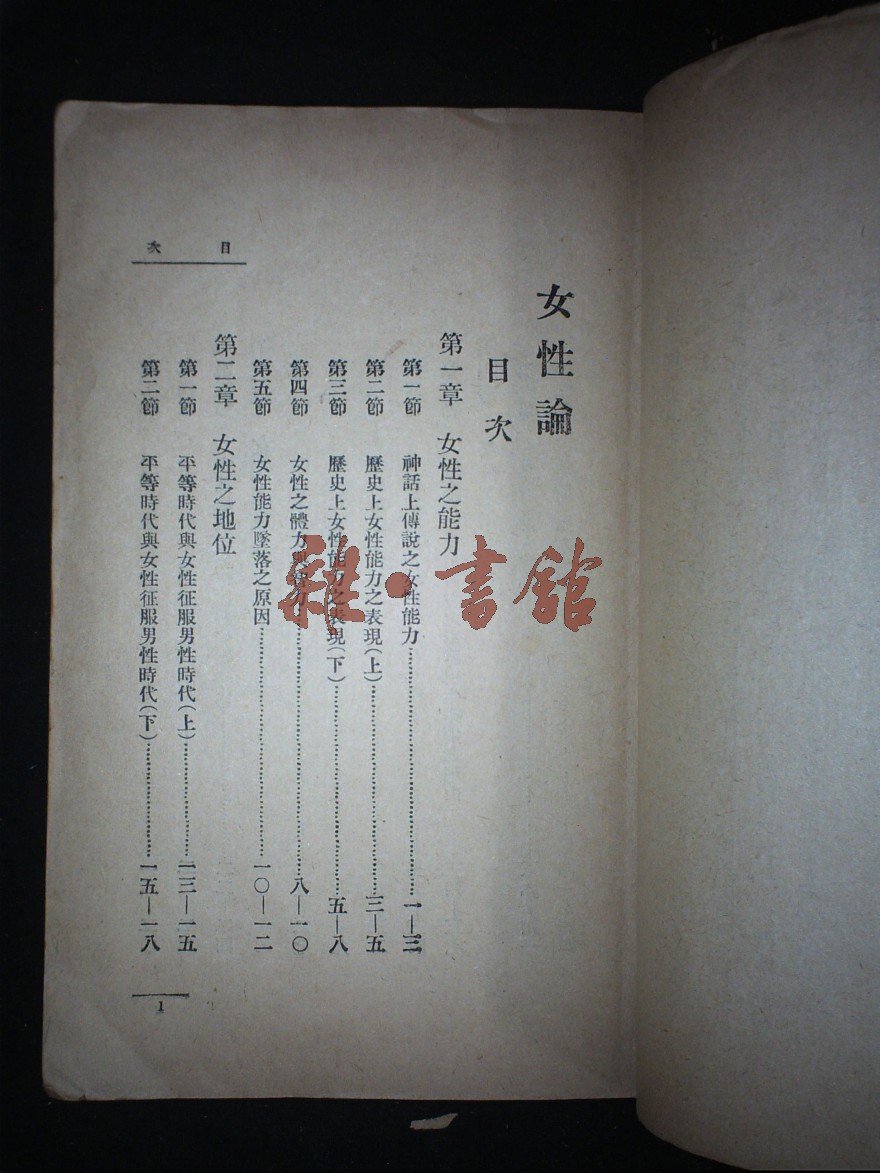 女性論
目次
第一章 女性之能力
第一節 神話上傳說之女性能力……一—三
第二節 歷史上女性能力之表現(上)……三—五
第三節 歷史上女性能力之表現(下)……五—八
第四節 女性之體力與智力……八—一〇
第五節 女性能力墜落之原因……一〇—一二
第二章 女性之地位
第一節 平等時代與女性征服男性時代(上)……一三—一五
第二節 平等時代與女性征服男性時代(下)……一五—一八
目次
1
雜·書館